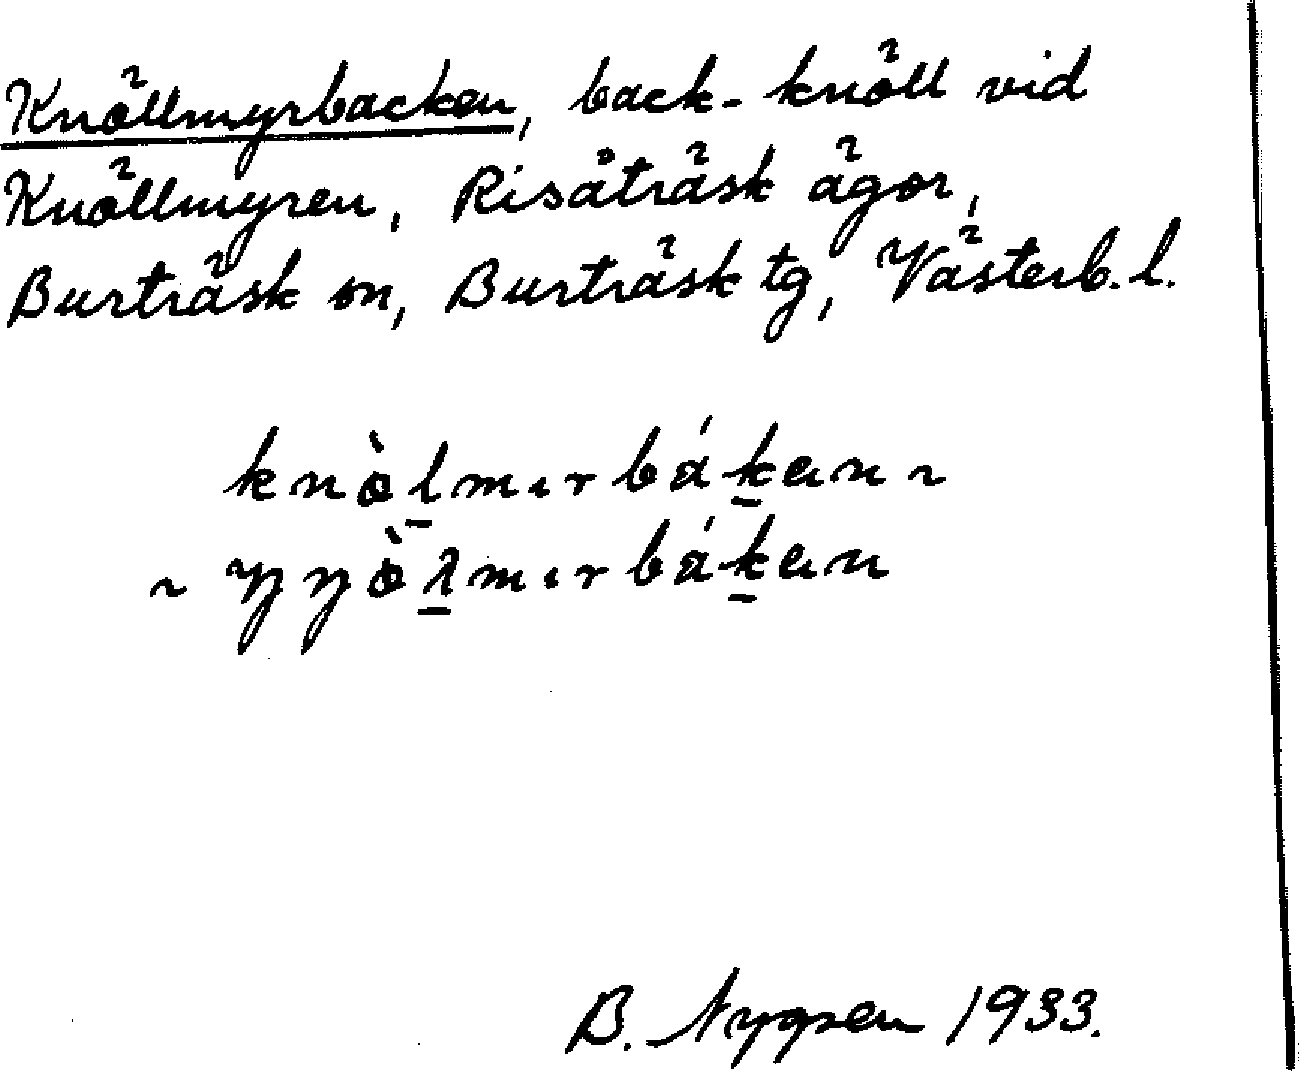 Knöllmyrbacken, back-knöll vid
Knöllmyren, Risåträsk ägor,
Burträsk sn, Burträsk tg, Västerb. l.
knò̱lmırbáḵen ~
~ ŋŋòλ̱mırbáḵen
B. Nygren 1933.